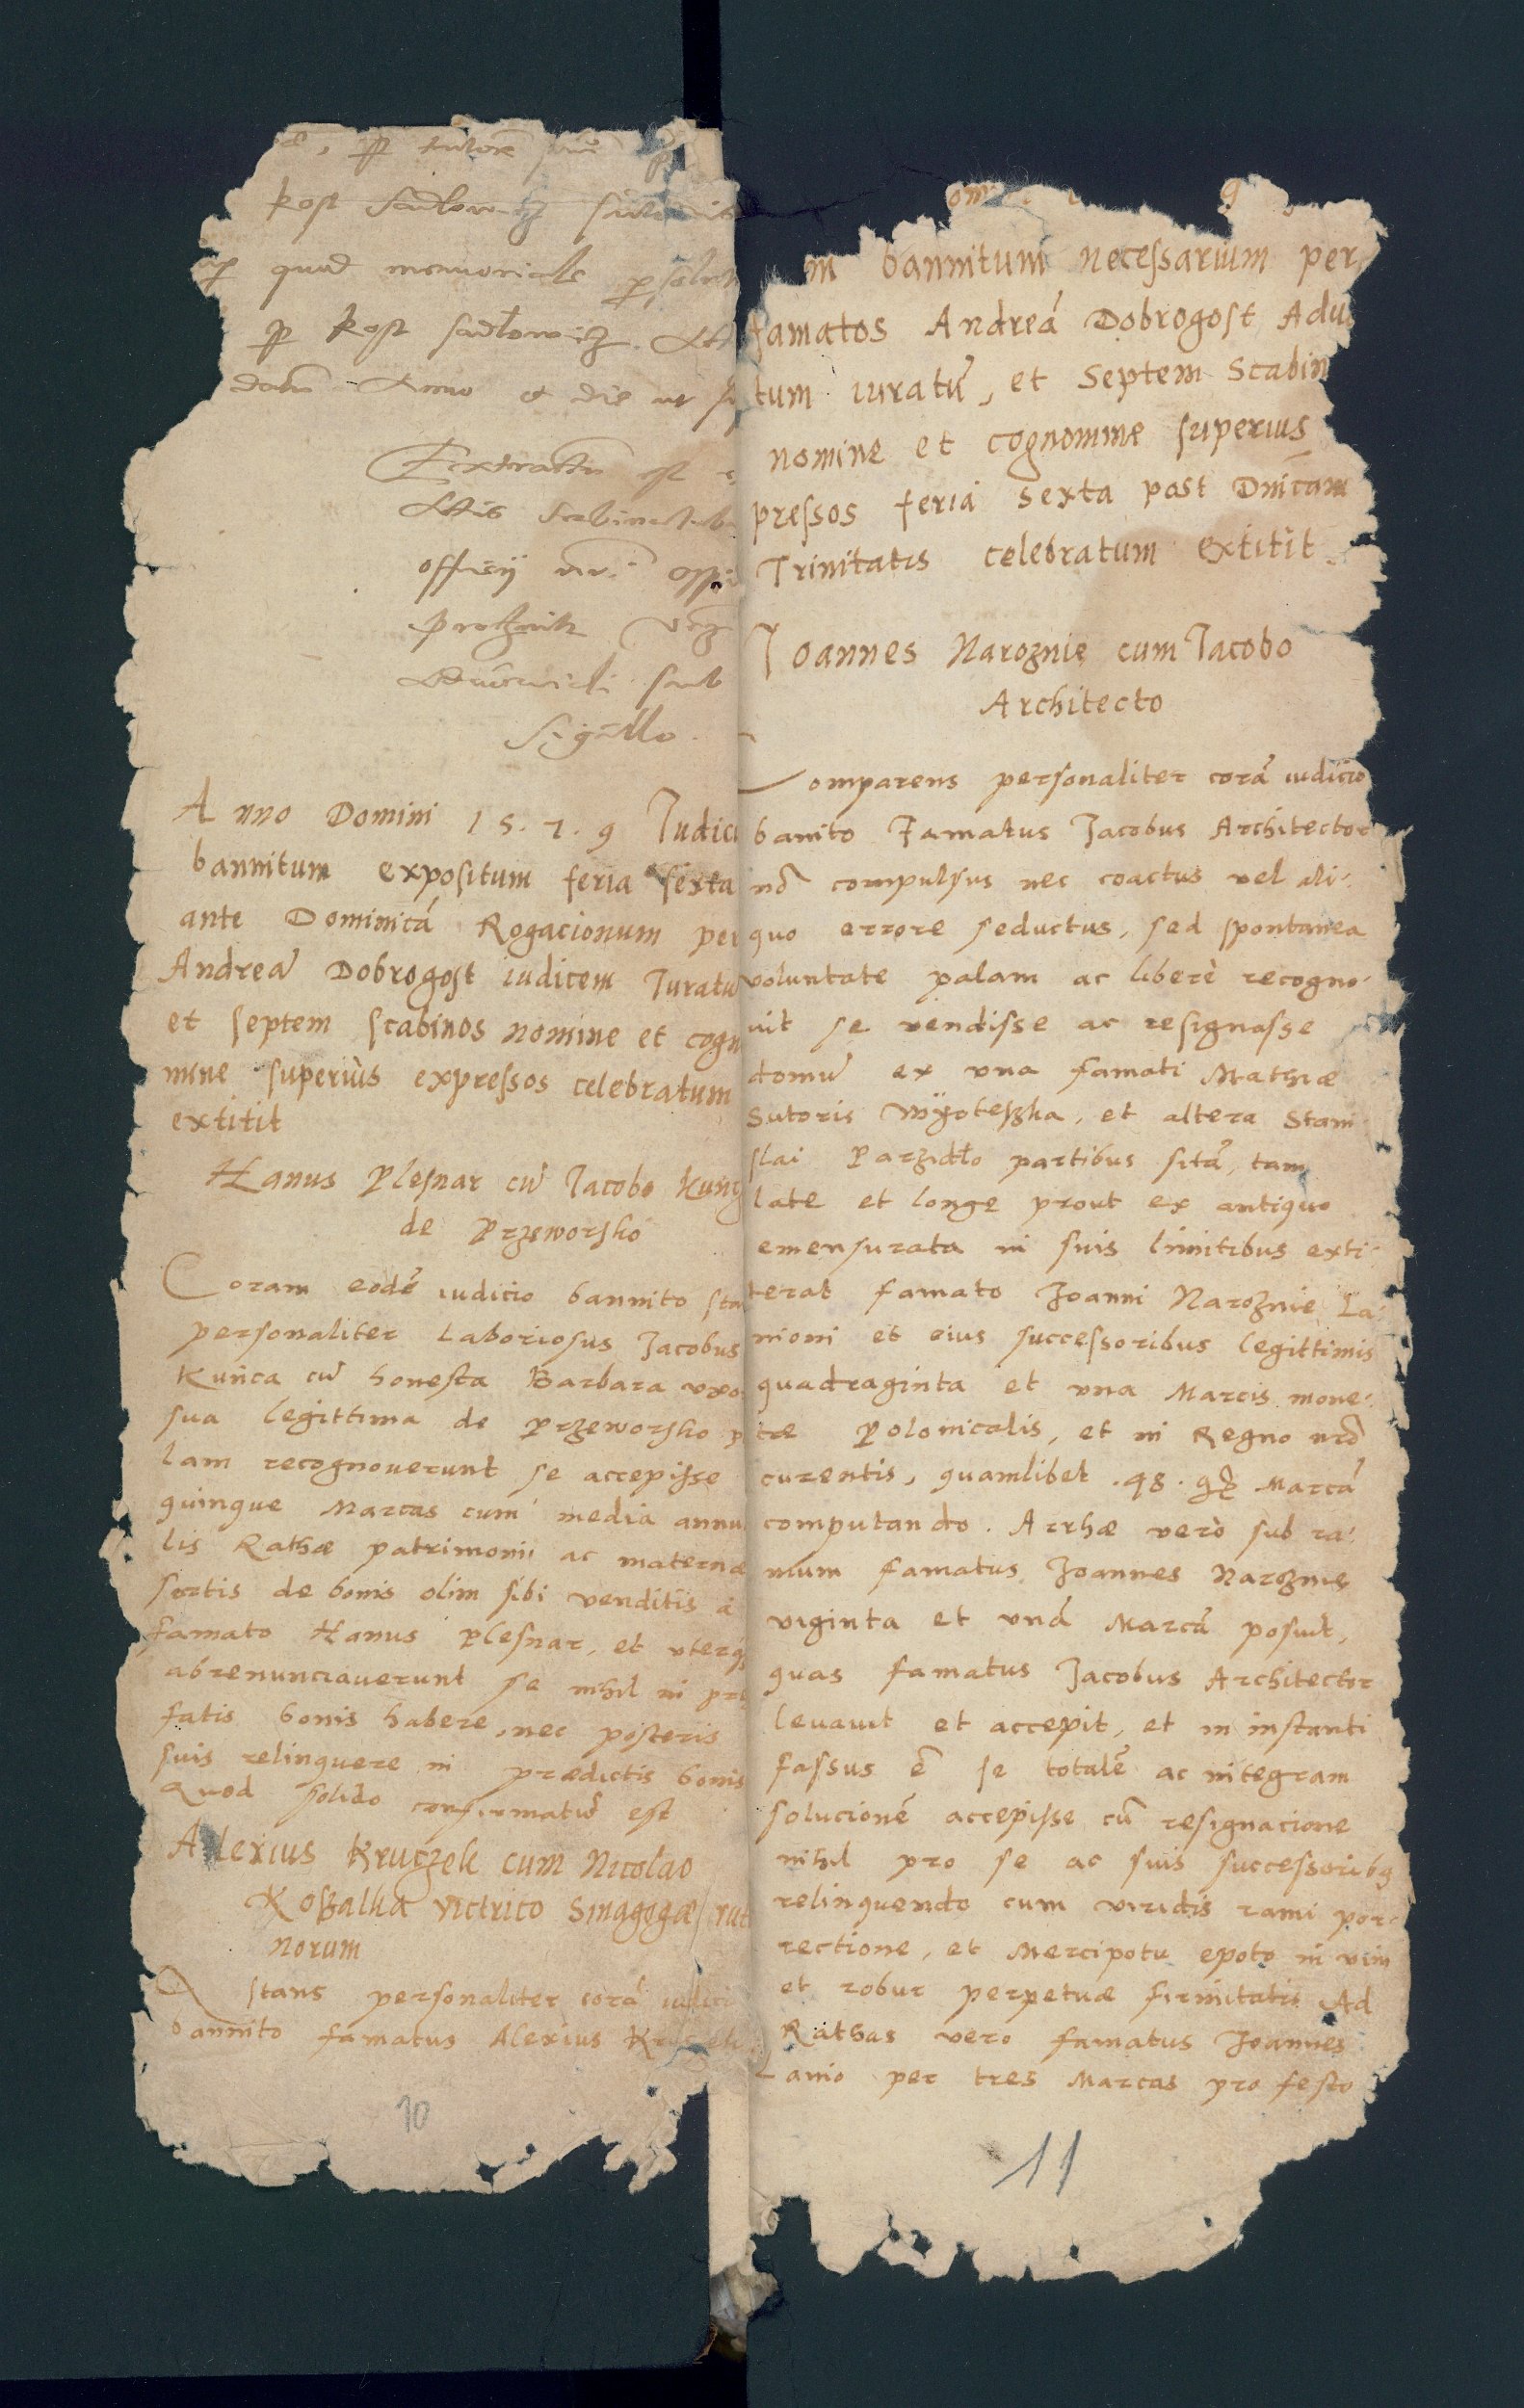 post Sadlowicz
quod memoriale
p post Sadlowicz
datum Anno et die ut
Extractum est
Actis Scabinalib
officij nri oppi
sub
Sigillo.
Anno Domini 1 5. 7. 9 Judici
bannitum expositum feria sexta
ante Dominicā Rogacionum per
Andreā Dobrogost iudicem Juratu
et septem scabinos nomine et cogn
mine superiùs expressos celebratum
extitit
Hanus Plesnar cū Jacobo Kunc
de Przeworsko
Coram eodē iudicio bannito sta
personaliter laboriosus Jacobus
Kunca cū honesta Barbara vxo
sua legittima de Przeworsko p
lam recognouerunt se accepisse
quinque Marcas cum media annu
lis Rathæ patrimonii ac maternæ
sortis de bonis olim sibi venditis á
famato Hanus Plesnar, et uterq
abrenunciaverunt se nihil in præ
fatis bonis habere, nec posteris
suis relinquere in prædictis bonis
Quod solido confirmatū est
Alexius Kruczek cum Nicolao
Koszalka victrico Sinagogæ rut
norum
stans personaliter corā iudici
bannito famatus Alexius Kruczek
10
m bannitum necessarium per
famatos Andreā Dobrogost Adu
tum iuratū, et Septem Scabin
nomine et cognomine superius
pressos feria sexta post Dnicam
Trinitatis celebratum extitit.
Joannes Naroznie cum Jacobo
Architecto
Comparens personaliter corā iudicio
banito Famatus Jacobus Architector
nō compulsus nec coactus vel ali-
quo errore seductus, sed spontanea
voluntate palam ac liberè recogno-
uit se vendisse ac resignasse
domū ex una famati Mathiæ
Sutoris Wÿoteszka, et altera Stani
slai Parzidło partibus sitā, tam
late et longe prout ex antiquo
emensurata in suis limitibus exti-
terat famato Joanni Naroznie La-
nioni et eius successoribus legittimis
quadraginta et una Marcis mone-
tæ Polonicalis, et in Regno nrō
curentis, quamlibet .48. Marcā
computando. Arrhæ verò sub ra-
mum famatus Joannes Naroznie
viginta et unā Marcā posuit,
quas famatus Jacobus Architector
leuauit et accepit, et in instanti
fassus ē se totalē ac integram
solucionē accepisse cū resignacione
nihil pro se ac suis successoribq
relinquendo cum viridis rami por-
rectione, et Mercipotu epoto in vim
et robur perpetuæ firmitatis Ad
Rathas vero famatus Joannes
Lanio per tres Marcas pro festo
11